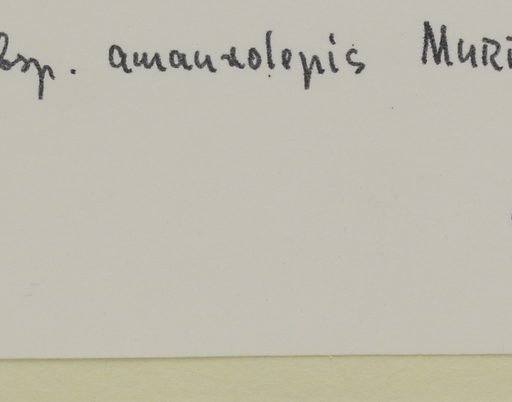 bsp. amaurolepis MURR